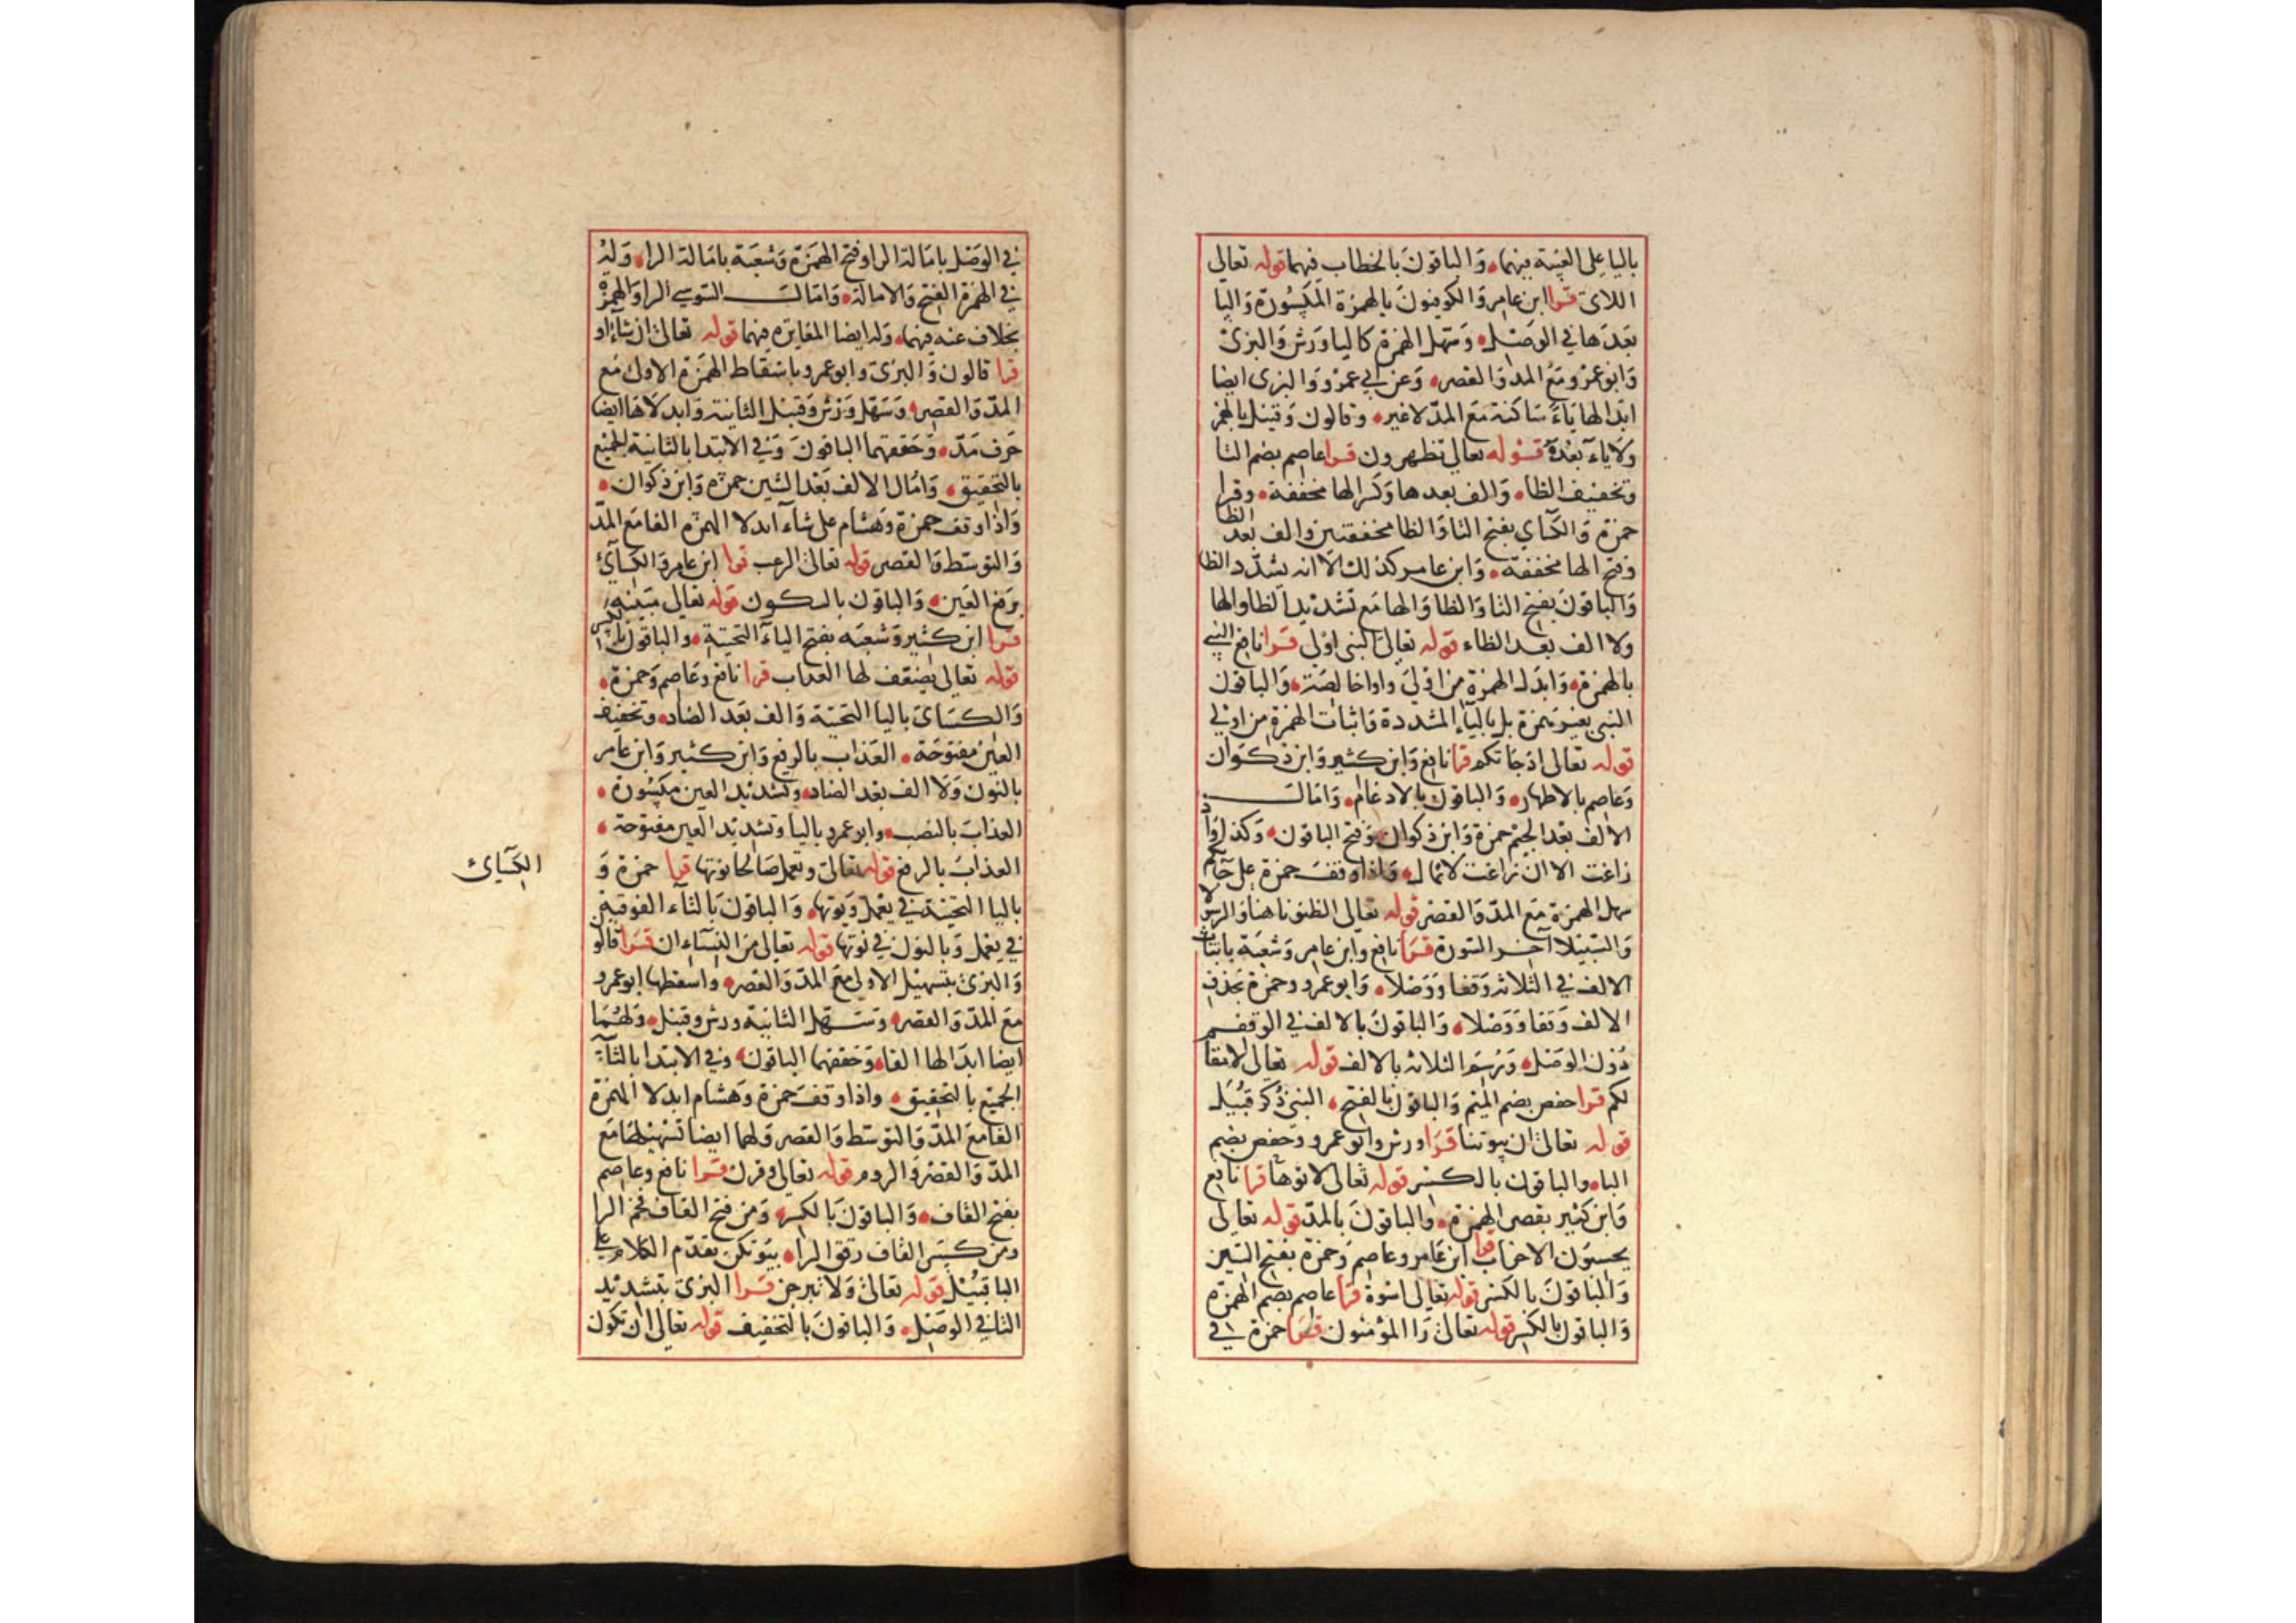 باليا على الغيبة فيهما والباقون بالخطاب فيهما قوله تعالى
اللائ قرا ابن عامر والكوفيون بالهمزة المكسورة واليا
بعدها في الوصل وسهل الهمزة كاليا ورش والبزى
وابو عمرو مع المد والقصر وعن ابي عمرو والبزى ايضا
ابدالها ياء ساكنة مع المد لا غير وقالون وقنبل بالهمز
ولا ياء بعده قوله تعالى تظهرون قرا عاصم بضم التا
وتخفيف الظا والف بعدها وكسر الها مخففة وقرا
حمزة والكسآي بفتح التا والظا مخففتين والف بعد الظا
وفتح الها مخففة وابن عامر كذلك الا انه يشدد الظا
والباقون بفتح التا والظا والها مع تشديد الظا والها
ولا الف بعد الظاء قوله تعالى النبى اولى قرا نافع النبي
بالهمزة وابدل الهمزة من اولى واوا خالصة والباقون
النبى بغير همزة بل بالياء المشددة واثبات الهمزة من اولي
قوله تعالى اذ جاتكم قرا نافع وابن كثير وابن ذكوان
وعاصم بالاظهار والباقون بالادغام وامال
الالف بعد الجيم حمزة وابن ذكوان وفتح الباقون وكذا واذ
زاغت الا ان زاغت لا تمال واذا وقف حمزة على جآكم
سهل الهمزة مع المد والقصر قوله تعالى الظنونا هنا والرسولا
والسبيلا آخر السورة قرا نافع وابن عامر وشعبة باثبات
الالف في الثلاثه وقفا ووصلا وابو عمرو وحمزة بحذف
الالف وقفا ووصلا والباقون بالالف في الوقف
دون الوصل ورسم الثلاثه بالالف قوله تعالى لا مقام
لكم قرا حفص بضم الميم والباقون بالفتح النبي ذكر قبيل
قوله تعالى ان بيوتنا قرا ورش وابو عمرو وحفص بضم
الباء والباقون بالكسر قوله تعالى لاتوها قرا نافع
وابن كثير بقصر الهمزة والباقون بالمد قوله تعالى
يحسبون الاحزاب قرا ابن عامر وعاصم وحمزة بفتح السين
والباقون بالكسر قوله تعالى اسوة قرا عاصم بضم الهمزة
والباقون بالكسر قوله تعالى را المؤمنون قرا حمزة
في الوصل بامالة الرا وفتح الهمزة وشعبة بامالة الرا وله
في الهمزة الفتح والامالة وامال السوسي الرا والهمزة
بخلاف عنه فيهما وله ايضا المغايره فيهما قوله تعالى ان شآء او
قرا قالون والبزى وابو عمرو باسقاط الهمزة الاولى مع
المد والقصر وسهل ورش وقنبل الثانية وابدلاها ايضا
حرف مد وحققهما الباقون وفي الابتدا بالثانية للجميع
بالتحقيق وامال الالف بعد الشين حمزة وابن ذكوان
واذا وقف حمزة وهشام على شآء ابدلا الهمزة الفا مع المد
والتوسط والقصر قوله تعالى الرعب قرا ابن عامر والكسآئ
برفع العين والباقون بالسكون قوله تعالى مبينة
قرا ابن كثير وشعبه بفتح الياء التحتية والباقون بالكسر
قوله تعالى يضعف لها العذاب قرا نافع وعاصم وحمزة
والكسائ باليا التحتية والف بعد الضاد وتخفيف
العين مفتوحة العذاب بالرفع وابن كثير وابن عامر
بالنون ولا الف بعد الضاد وتشديد العين مكسورة
العذاب بالنصب وابو عمرو باليا وتشديد العين مفتوحة
العذاب بالرفع قوله تعالى وتعمل صالحا نوتها قرا حمزة و
الكسائ
باليا التحتية في يعمل ويوتها والباقون بالتآء الفوقية
في يعمل وبالنون في نوتها قوله تعالى من النساء ان قرا قالو
والبزى بتسهيل الاولى مع المد والقصر واسقطها ابو عمرو
مع المد والقصر وسهل الثانية ورش وقنبل ولهما
ايضا ابدالها الفا وحققهما الباقون وفي الابتدا بالثآنية
الجميع بالتحقيق واذا وقف حمزة وهشام ابدلا الهمزة
الفا مع المد والتوسط والقصر ولهما ايضا تسهيلها مع
المد والقصر والروم قوله تعالى وقرن قرا نافع وعاصم
بفتح القاف والباقون بالكسر ومن فتح القاف فخم الرا
ومن كسر القاف رقق الرا بيوتكن تقدم الكلام على
البا قبيل قوله تعالى ولا تبرجن قرا البزى بتشديد
التا في الوصل والباقون بالتخفيف قوله تعالى ان تكون